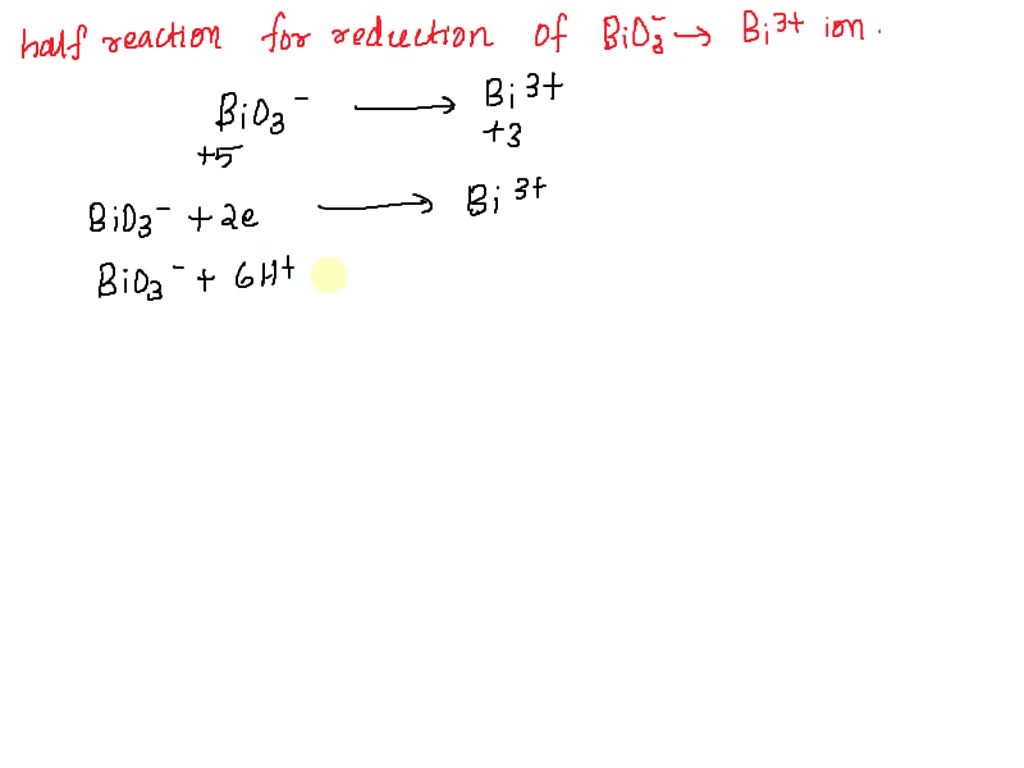 half reaction for reduction of BiO₃⁻ → Bi³⁺ ion.
BiO₃⁻ → Bi³⁺
+5 +3
BiO₃⁻ + 2e → Bi³⁺
BiO₃⁻ + 6H⁺